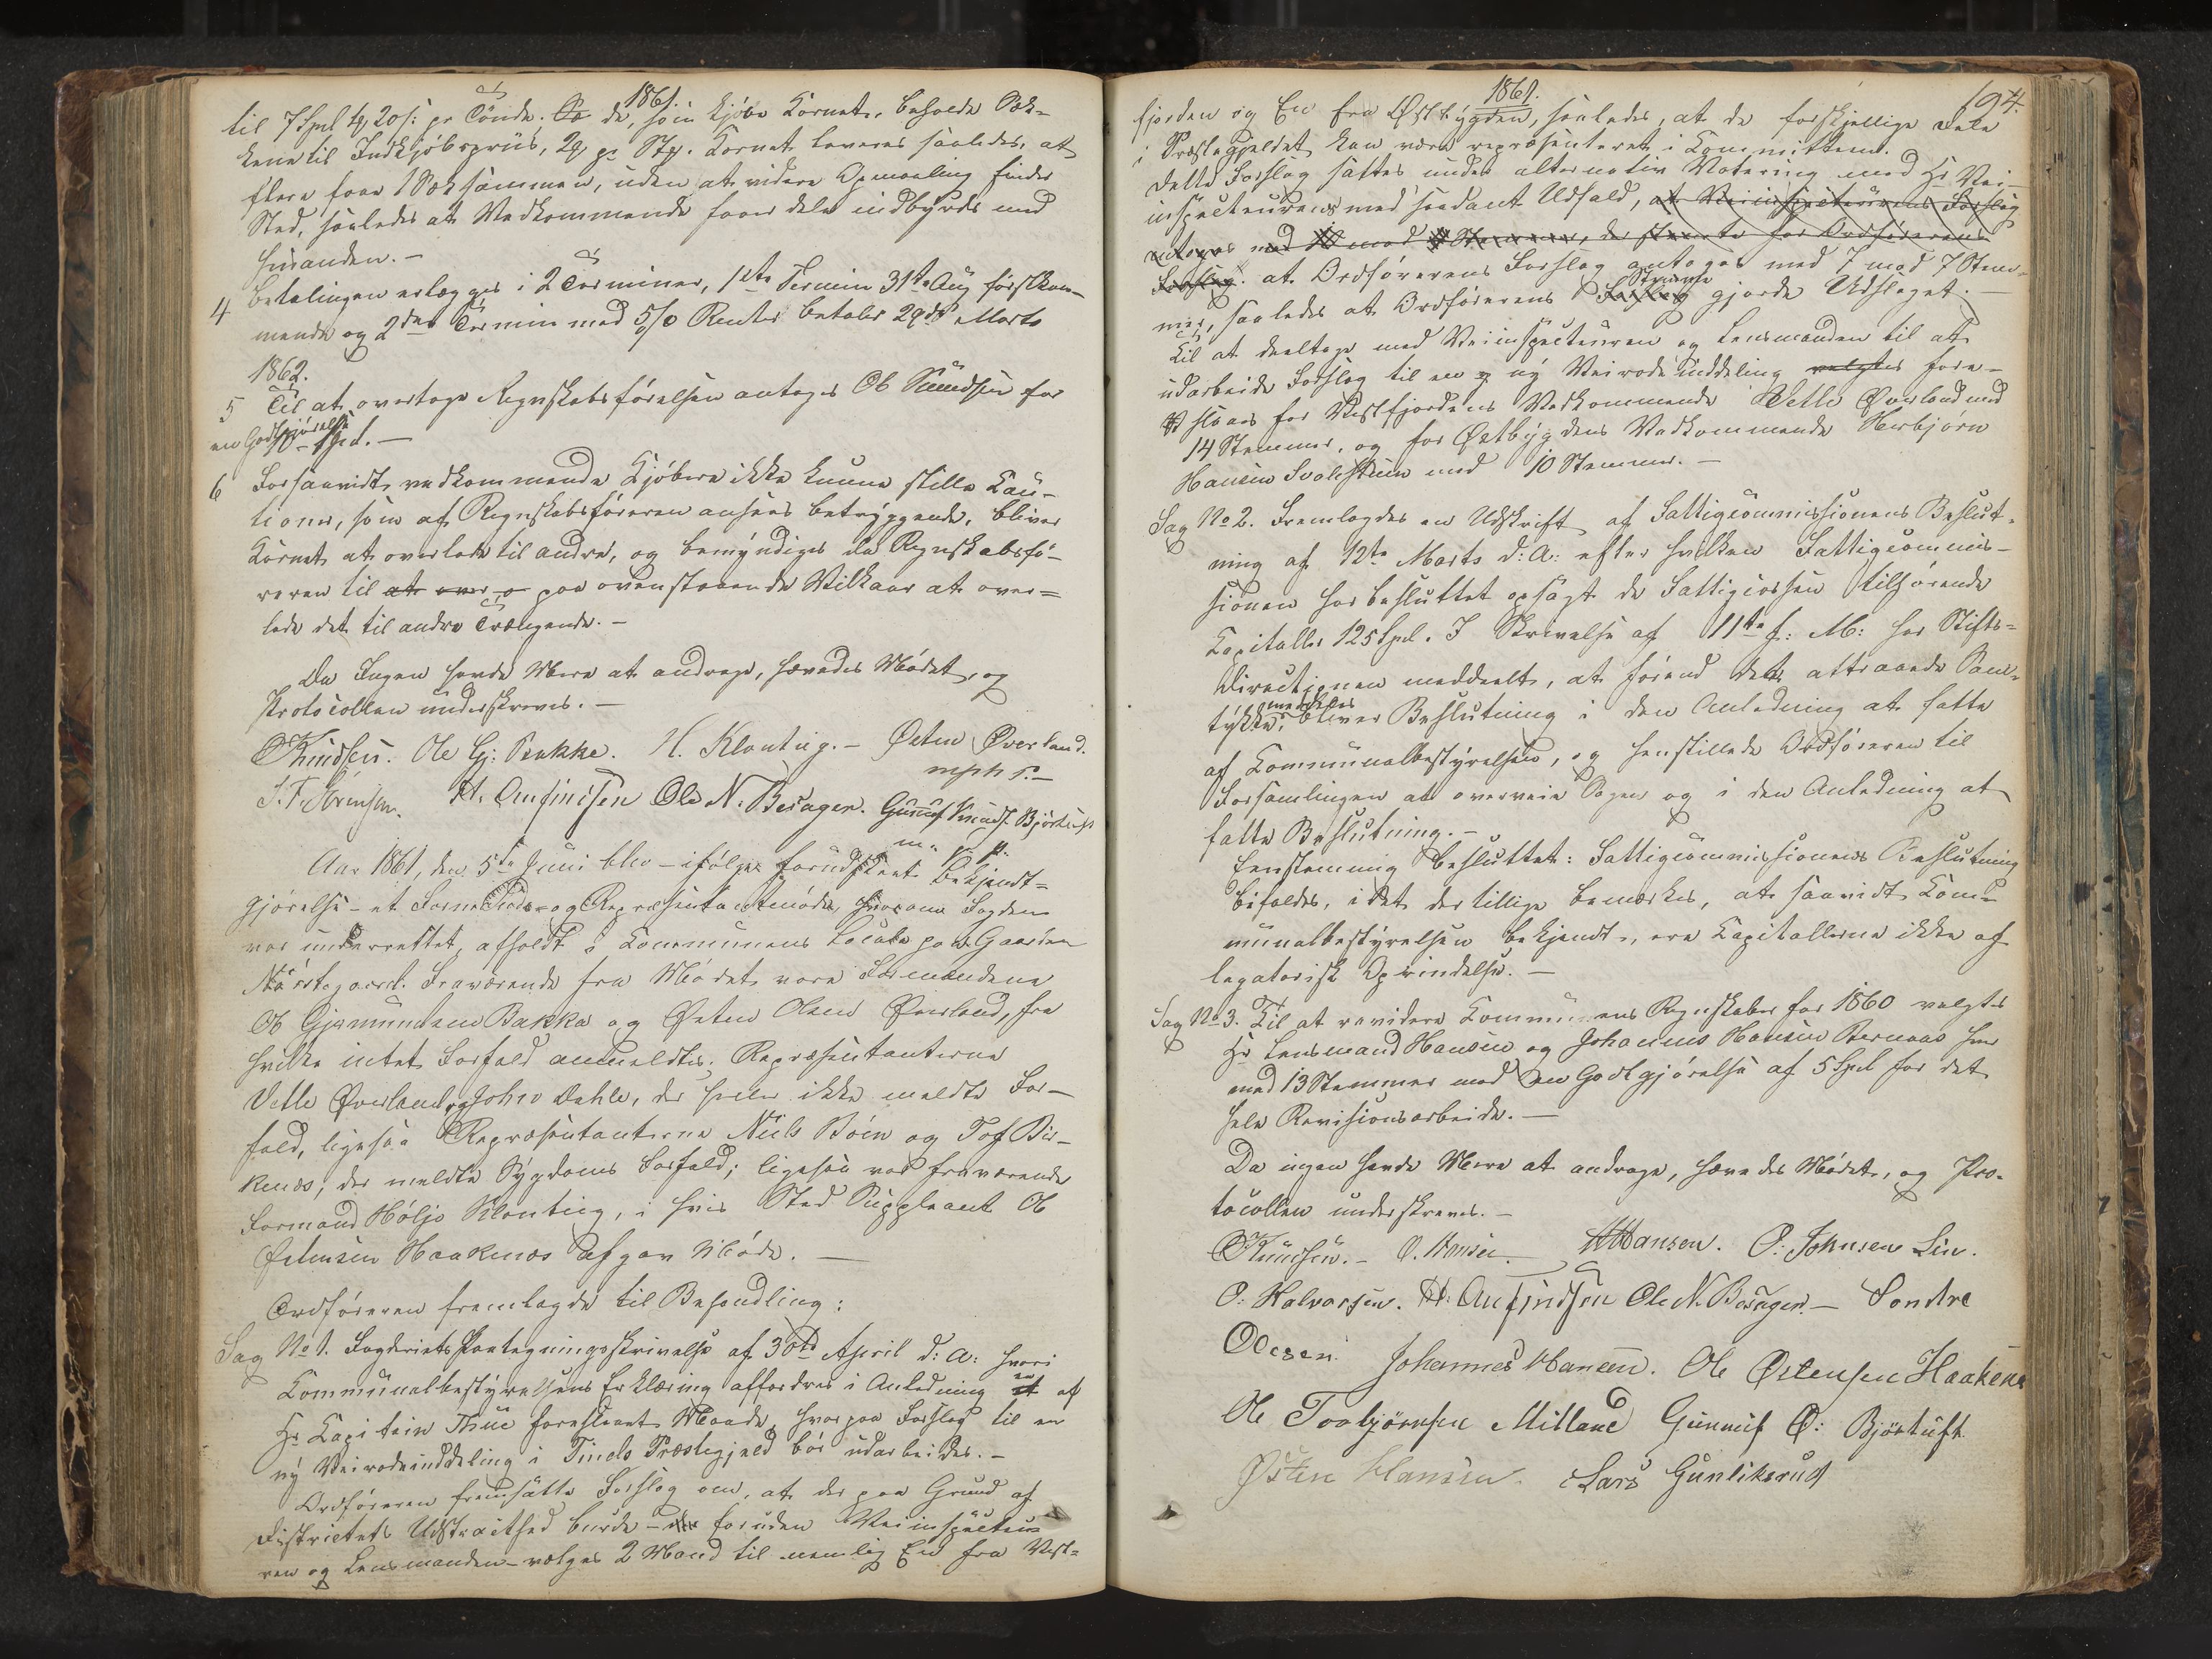 1861.
til 7 Spd 4 ₰ 20 s: pr Tønde. De, som kjøbe Kornet, beholde Sæk-
kene til Indkjøbspriis, 2 ₰ pr Stk. Kornet leveres saaledes, at
flere faae 1 Sæk sammen, uden at videre Opmaaling finder
Sted, saaledes at Vedkommende faaer dele indbyrdes med
hinanden. —
4 Betalingen erlægges i 2 Terminer, 1ste Termin 31te Aug førstkom-
mende og 2den Termin med 5 % Renter betales 29de Marts
1862.
5 Til at overtage Regnskabsførelsen antages Ole Knudsen for
en Godtgjørelse
10 Spd. —
6 Forsaavidt vedkommende Kjøbere ikke kunne stille Cau-
tioner, som af Regnskabsføreren ansees betryggende, bliver
Kornet at overlade til andre, og bemyndiges da Regnskabsfø-
reren til at over paa ovenstaaende Vilkaar at over=
lade det til andre Trængende. —
Da Ingen havde Mere at andrage, hævedes Mødet, og
Protocollen underskreves. —
O Knudsen. Ole Gj: Bakke. H. Klontig. — Østen Øverland.
mph P. —
S. T. Sørensen. H. Anfindsen Ole N. Besager. Gunuf Knuds. Bjørtuft
m. p. P.
Aar 1861, den 5te Juni blev — ifølge forudskeet Bekjendt=
gjørelse — et Formands- og Repræsentantmøde, hvorom Fogden
var underrettet, afholdt i Kommunens Locale paa Gaarden
Næistegaard. Fraværende fra Mødet vare Formændene
Ole Gjermundsen Bakka og Østen Olsen Øverland, for
hvilke intet Forfald anmeldtes; Repræsentanterne
Vetle Øverland og John Dahle, der heller ikke meldte For-
fald, ligesaa Repræsentanterne Niels Bøen og Tof Bir-
kenæs, der meldte Sygdoms Forfald; ligesaa var fraværende
Formand Høljo Klonteig, i hvis Sted Suppleant Ole
Østensen Haakenæs afgav Møde. —
Ordføreren fremlagde til Behandling:
Sag No 1. Fogderiets Paategningsskrivelse af 30te April d: A: hvori
Kommunalbestyrelsens Erklæring affordres i Anledning en af
Hr Kapitain Thue foreslaaet Maade, hvorpaa Forslag til en
ny Veirodeinddeling i Tinds Præstegjeld bør udarbeides. —
Ordføreren fremsatte Forslag om, at der paa Grund af
Districtets Udstrakthed burde — foruden Veiinspecteu-
ren og Lensmanden — vælges 2 Mænd til nemlig En fra Vest=
1861.
194.
fjorden og En fra Østbygden, saaledes, at de forskjellige Dele
i Præstegjeldet kan være repræsenteret i Committeen.
Dette Forslag sattes under alternativ Votering med Hr Vei-
inspecteurens med saadant Udfald, at Veiinspecteurens Forslag
antoges med mod Stemmer, der stemte for Ordførerens
Forslag. at Ordførerens Forslag antoges med 7 mod 7 Stem-
Stemme
mer, saaledes at Ordførerens Forslag gjorde Udslaget. —
Til at deeltage med Veiinspecteuren og Lensmanden til at
udarbeide Forslag til en ny Veirodeinddeling valgtes fore-
sloaes for Vestfjordens Vedkommende Vetle Øverland med
14 Stemmer, og for Østbygdens Vedkommende Herbjørn
Hansen Svalestuen med 10 Stemmer. —
Sag No 2. Fremlagdes en Udskrift af Fattigcommissionens Beslut-
ning af 12te Marts d: A: efter hvilken Fattigcommis-
sionen har besluttet opsagt de Fattigcassen tilhørende
Capitaller 125 Spd. I Skrivelse af 11te f: M: har Stifts=
directionen meddeelt, at førend det attraaede Sam-
meddeles
tykke, bliver Beslutning i den Anledning at fatte
af Communalbestyrelsen, og henstillede Ordføreren til
Forsamlingen at overveie Sagen og i den Anledning at
fatte Beslutning. —
Eenstemmig besluttet: Fattigcommissionens Beslutning
bifaldes, idet der tillige bemærkes, at saavidt Com-
munalbestyrelsen bekjendt, ere Capitallerne ikke af
legatorisk Oprindelse. —
Sag No 3. Til at revidere Kommunens Regnskaber for 1860 valgtes
Hr Lensmand Hansen og Johannes Hansen Bernaas hver
med 13 Stemmer mod en Godtgjørelse af 5 Spd for det
hele Revisionsarbeide. —
Da ingen havde Mere at andrage, hævedes Mødet, og Pro-
tocollen underskreves. —
O Knudsen. — O. Hansen. H Hansen. O. Johnsen Lien.
O. Halvorsen. H. Anfindsen Ole N. Besager. — Sondre
Olesen. Johannes Hansen. Ole Østensen Haakenæs
Ole Torbjørnsen Milland Gunnuf Ø: Bjørtuft
Østen Hansen. Lars Gunliksrud